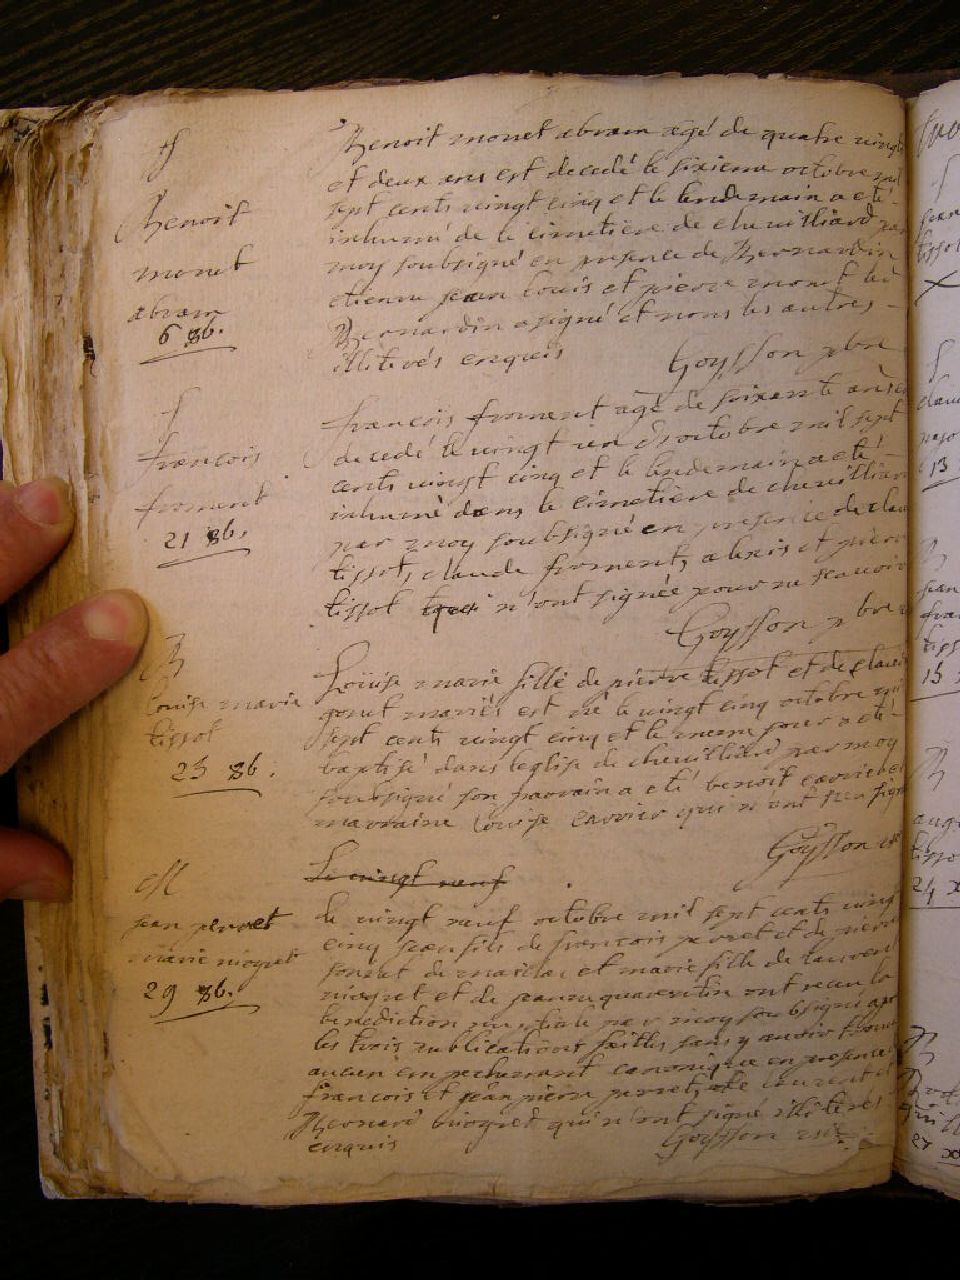 S
Benoit
monet
abram
6 8b.
Benoit monet abram agé de quatre vingt
et deux ans est decedé le sixieme octobre mil
sept cents vingt cinq et le lendemain a eté
inhumé de le cimetière de chevilliard par
moy soubsigné en presence de Bernardin
etienne jean louis et pierre monet led
Bernardin a signé et nons les autres
illiterés enquis
Goysson pbre
S
francois
froment
21 8b.
francois froment agé de soixante ans
decedé le vingt un octobre mil sept
cents vingt cinq et le lendemain a eté
inhumé dans le cimetière de chevilliard
par moy soubsigné en presence de clau
tissot, claude froment, alexis et pierre
tissot qui n'ont signée pour ne scavoir
Goysson pbre
B
Louise marie
tissot
25 8b.
Louise marie fille de pierre tissot et de claud
gonet mariés est né le vingt cinq octobre mil
sept cents vingt cinq et le meme jour a eté
baptisé dans leglise de chevilliard par moy
soubsigné son parrain a eté benoit carrier et
marraine Louise carrier qui n'ont sceu signe
Goysson
M
jean perret
marie niogret
29 8b.
Le vingt neuf
le vingt neuf octobre mil sept cents vingt
cinq jean fils de francois perret et de pierre
et marie fille de lauren
niogret et de jeanne quarentin ont receu la
benediction nuptiale par moy soubsigné apr
les trois publications faittes sans y avoir trouv
aucun empechement canonique en presence
francois et jean pierre perret, de laurent et
Bernard niogret qui n'ont signé illiterés
enquis
Goysson